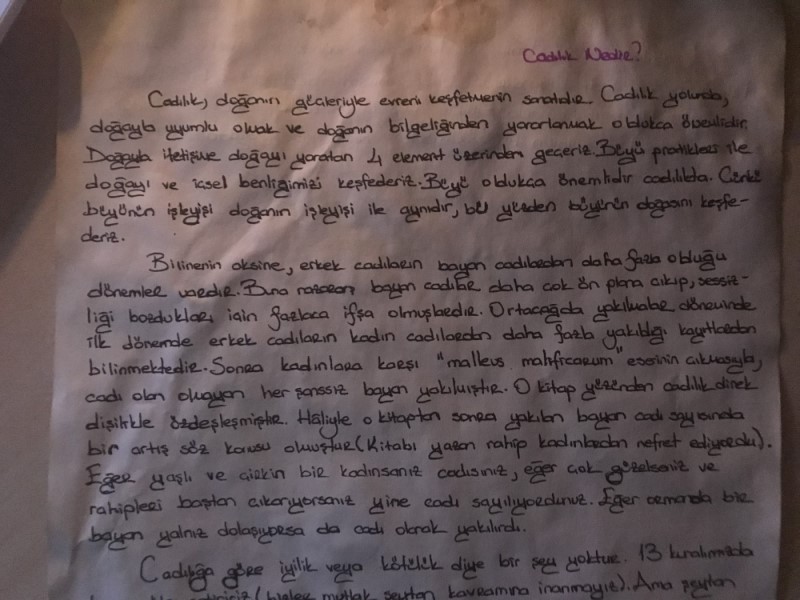 Cadılık Nedir?
Cadılık, doğanın güçleriyle evreni keşfetmenin sanatıdır. Cadılık yolunda,
doğayla uyumlu olmak ve doğanın bilgeliğinden yararlanmak oldukça önemlidir.
Doğayla iletişime doğayı yaratan 4 element üzerinden geçeriz. Büyü pratikleri ile
doğayı ve içsel benliğimizi keşfederiz. Büyü oldukça önemlidir cadılıkta. Çünkü
büyünün işleyişi doğanın işleyişi ile aynıdır, bu yüzden büyünün doğasını keşfe-
deriz.
Bilinenin aksine, erkek cadıların bayan cadılardan daha fazla olduğu
dönemler vardır. Buna nazaran bayan cadılar daha çok ön plana çıkıp, sessiz-
liği bozdukları için fazlaca ifşa olmuşlardır. Ortaçağda yakılmalar döneminde
ilk dönemde erkek cadıların kadın cadılardan daha fazla yakıldığı kayıtlardan
bilinmektedir. Sonra kadınlara karşı "malleus malificarum" eserinin çıkmasıyla,
cadı olan olmayan her şanssız bayan yakılmıştır. O kitap yüzünden cadılık direk
dişilikle özdeşleşmiştir. Hâliyle o kitaptan sonra yakılan bayan cadı sayısında
bir artış söz konusu olmuştur (Kitabı yazan rahip kadınlardan nefret ediyordu).
Eğer yaşlı ve çirkin bir kadınsanız cadısınız, eğer çok güzelseniz ve
rahipleri baştan çıkarıyorsanız yine cadı sayılıyordunuz. Eğer ormanda bir
bayan yalnız dolaşıyorsa da cadı olarak yakılırdı.
Cadılığa göre iyilik veya kötülük diye bir şey yoktur. 13 kuralımızda
(bizler mutlak şeytan kavramına inanmayız). Ama şeytan